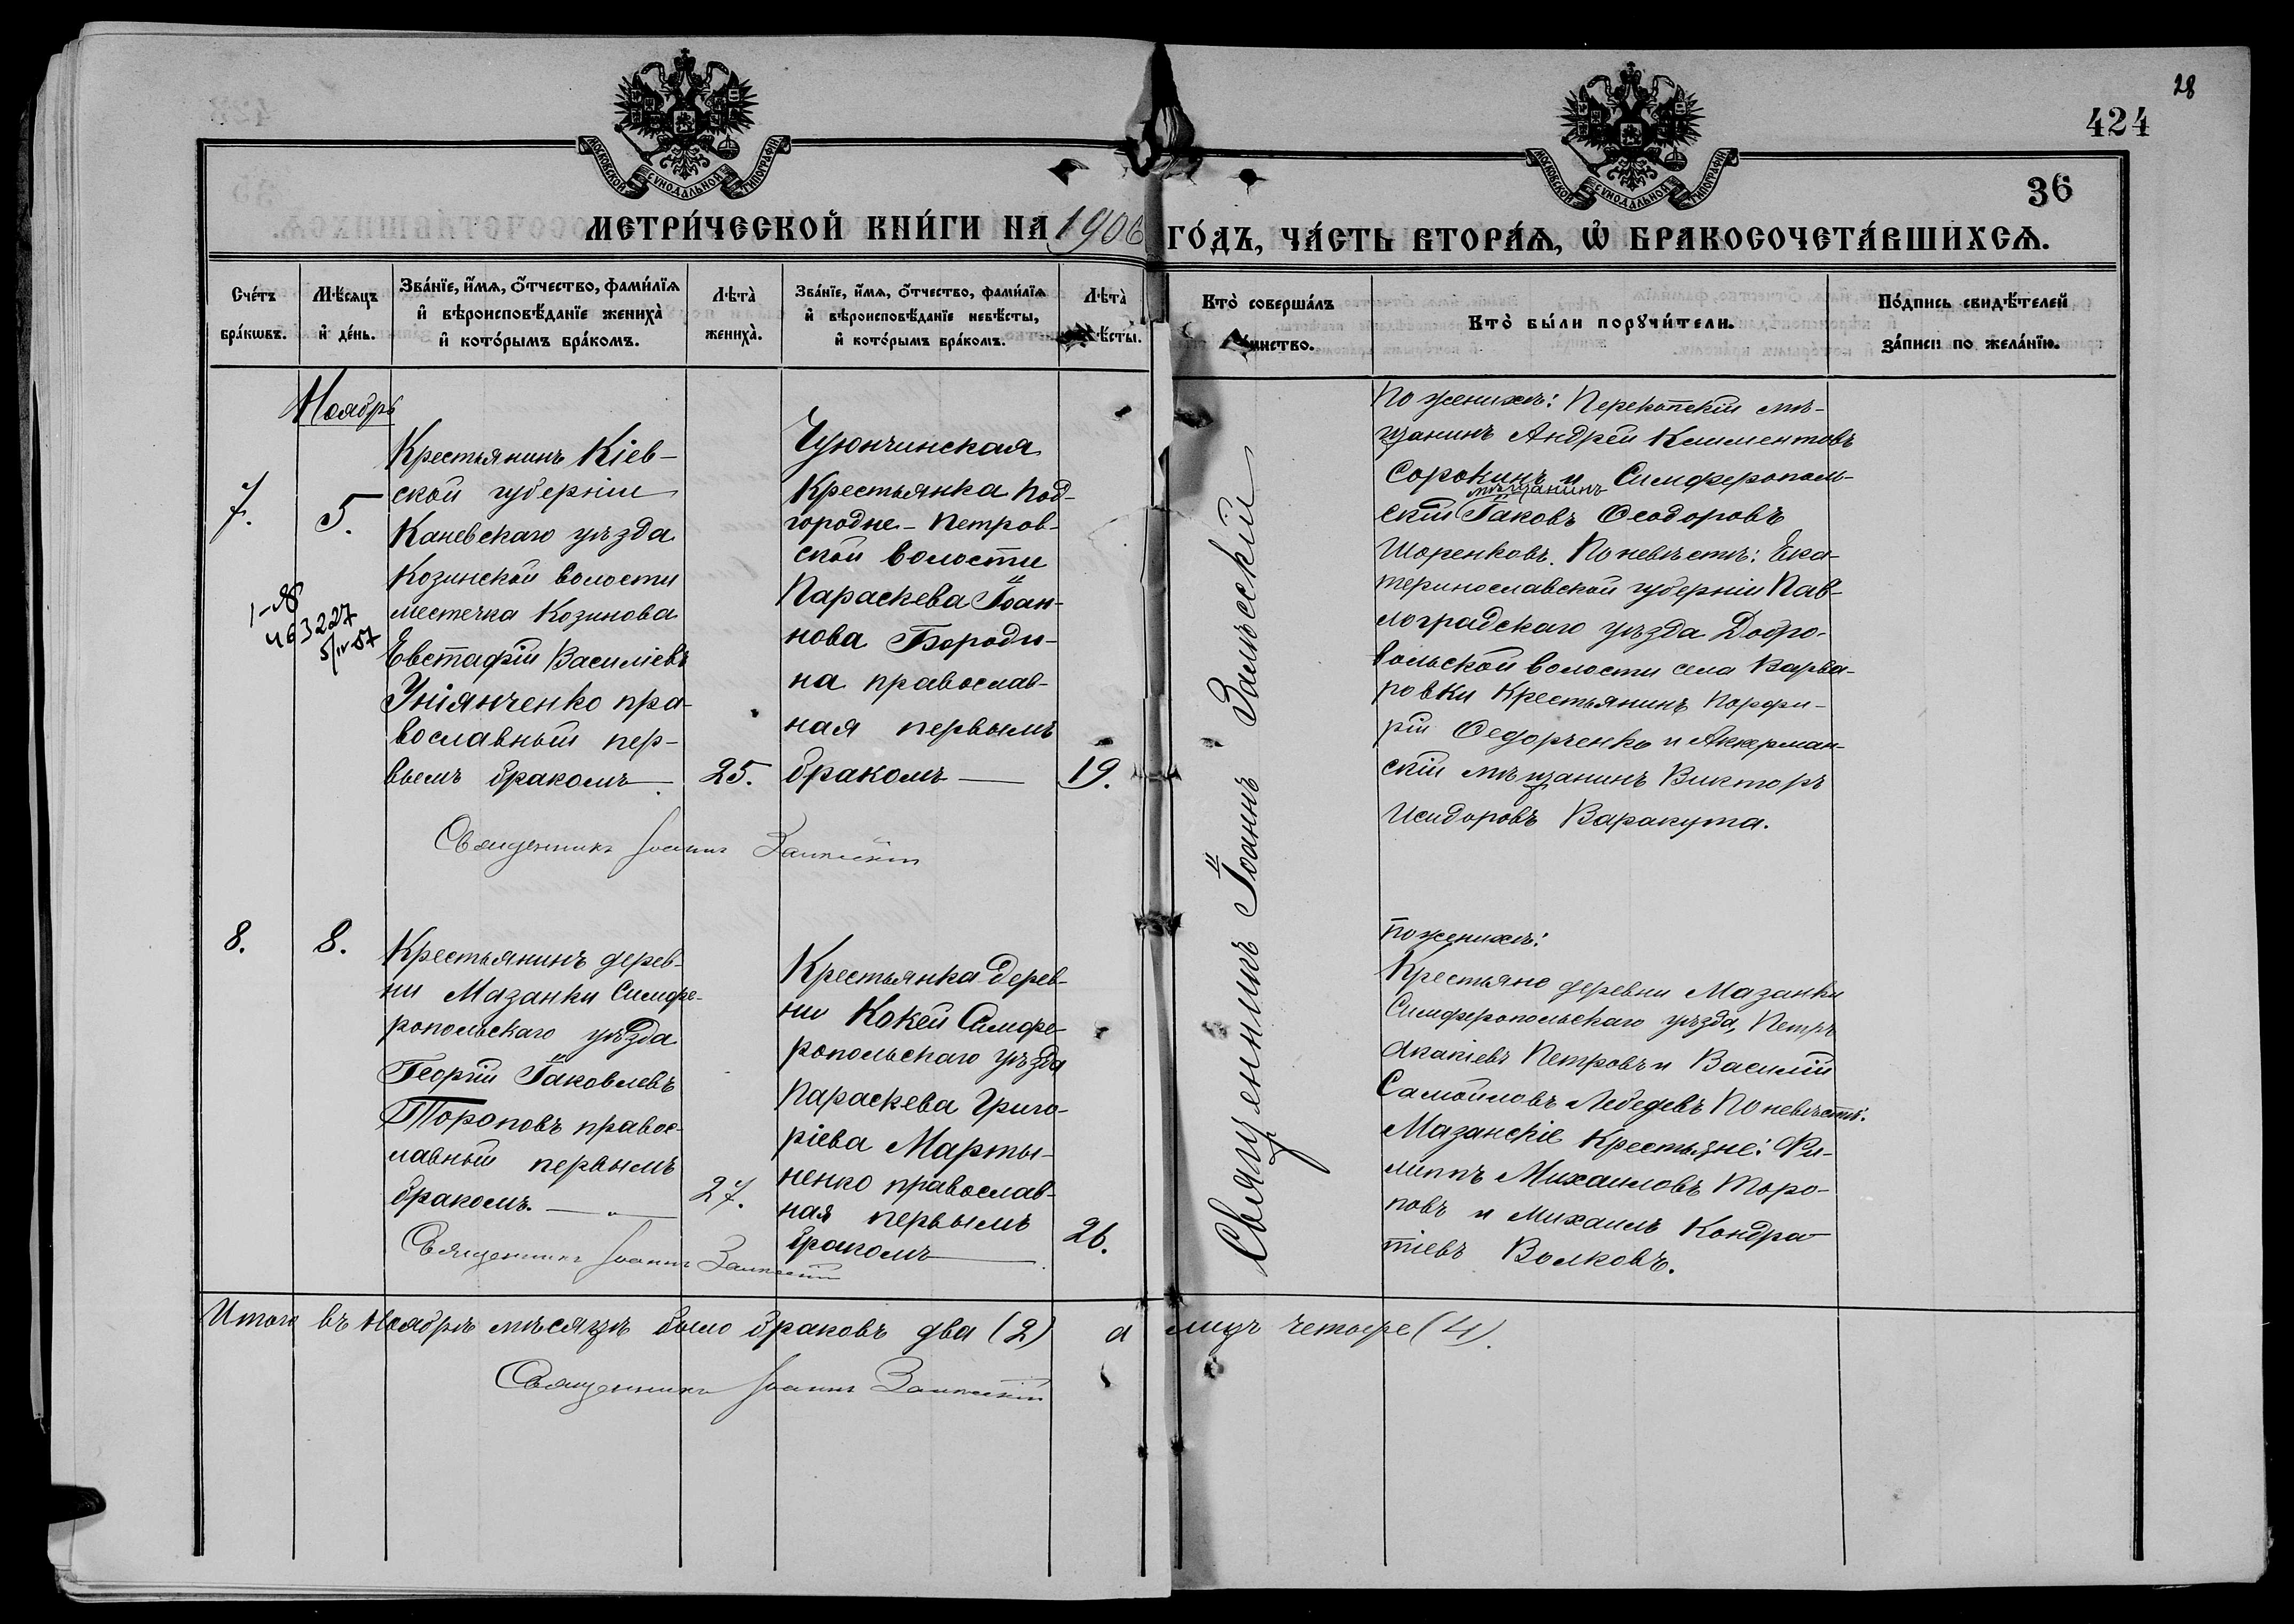 28
424
36
МОСКОВСКОЙ СУНОДАЛЬНОЙ ТИПОГРАФІИ
МОСКОВСКОЙ СУНОДАЛЬНОЙ ТИПОГРАФІИ
МЕТРИ́ЧЕСКОЙ КНИ́ГИ НА 1906 ГО́ДЪ, ЧА́СТЬ ВТОРА́Я, Ѡ БРАКОСОЧЕТА́ВШИХСЯ.
Сче́тъ
бра́кѡвъ.
Мѣ́сяцъ
и де́нь.
Зва́нїе, и́мѧ, о́тчество, фами́лїѧ
и вѣроисповѣ́данїе жениха̀
и кото́рымъ бра́комъ.
Лѣта̀
жениха̀.
Зва́нїе, и́мѧ, о́тчество, фами́лїѧ
и вѣроисповѣ́данїе невѣ́сты,
и кото́рымъ бра́комъ.
Лѣта̀
ѣсты.
Кто̀ соверша́лъ
инство.
Кто̀ бы́ли порꙋчи́тели.
По́дпись свидѣ́телей
за́писи по жела́нїю.
Ноябрь
7.
5.
Крестьянинъ Кіев-
ской губерніи
Каневскаго уѣзда
Козинской волости
местечка Козинова
Евстафій Василіевъ
Уніянченко пра-
вославный пер-
вымъ бракомъ
25.
Чуюнчинская
Крестьянка Под-
городне-Петров-
ской волости
Параскева Іоан-
нова Бороди-
на православ-
ная первымъ
бракомъ
19.
463227
5/IV-57
Священникъ Іоаннъ Залѣсскій
По женихѣ: Перекопскій мѣ-
щанинъ Андрей Климентовъ
Сорокинъ и Симферополь-
мѣщанинъ
скій Іаковъ Ѳеодоровъ
Шоренковъ. По невѣстѣ: Ека-
теринославской губерніи Пав-
лоградскаго уѣзда Добро-
вольской волости села Варва-
ровки Крестьянинъ Порфи-
рій Ѳедорченко и Аккерман-
скій мѣщанинъ Викторъ
Исидоровъ Варакута.
Священникъ Іоаннъ Залѣсскій
8.
8.
Крестьянинъ дерев-
ни Мазанки Симфе-
ропольскаго уѣзда
Георгій Іаковлевъ
Тороповъ правос-
лавный первымъ
бракомъ.
27.
Крестьянка дерев-
ни Кокей Симфе-
ропольскаго уѣзда
Параскева Григо-
ріева Марты-
ненко православ-
ная первымъ
бракомъ
26.
Священникъ Іоаннъ Залѣсскій
По женихѣ:
Крестьяне деревни Мазанки
Симферопольскаго уѣзда, Петръ
Акапіевъ Петровъ и Василій
Самойловъ Лебедевъ По невѣстѣ:
Мазанскіе Крестьяне: Фи-
липпъ Михаиловъ Торо-
повъ и Михаилъ Кондра-
тіевъ Волковъ.
Итого въ Ноябрѣ мѣсяцѣ было браковъ два (2) а лицъ четыре (4).
Священникъ Іоаннъ Залѣсскій